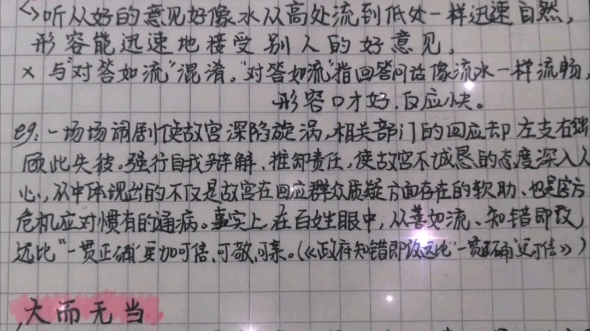 <>听从好的意见好像水从高处流到低处一样迅速自然,
形容能迅速地接受别人的好意见。
× 与"对答如流"混淆,"对答如流"指回答问话像流水一样流畅,
形容口才好,反应快。
eg: 一场场闹剧使故宫深陷旋涡,相关部门的回应却左支右绌
顾此失彼。强行自我辩解、推卸责任,使故宫不诚恳的态度深入人
心,从中体现出的不仅是故宫在回应群众质疑方面存在的软肋、也是官方
危机应对惯有的通病。事实上,在百姓眼中,从善如流、知错即改
远比"一贯正确"更加可信、可敬、可亲。(《政府知错即改远比"一贯正确"更可信》)
大而无当